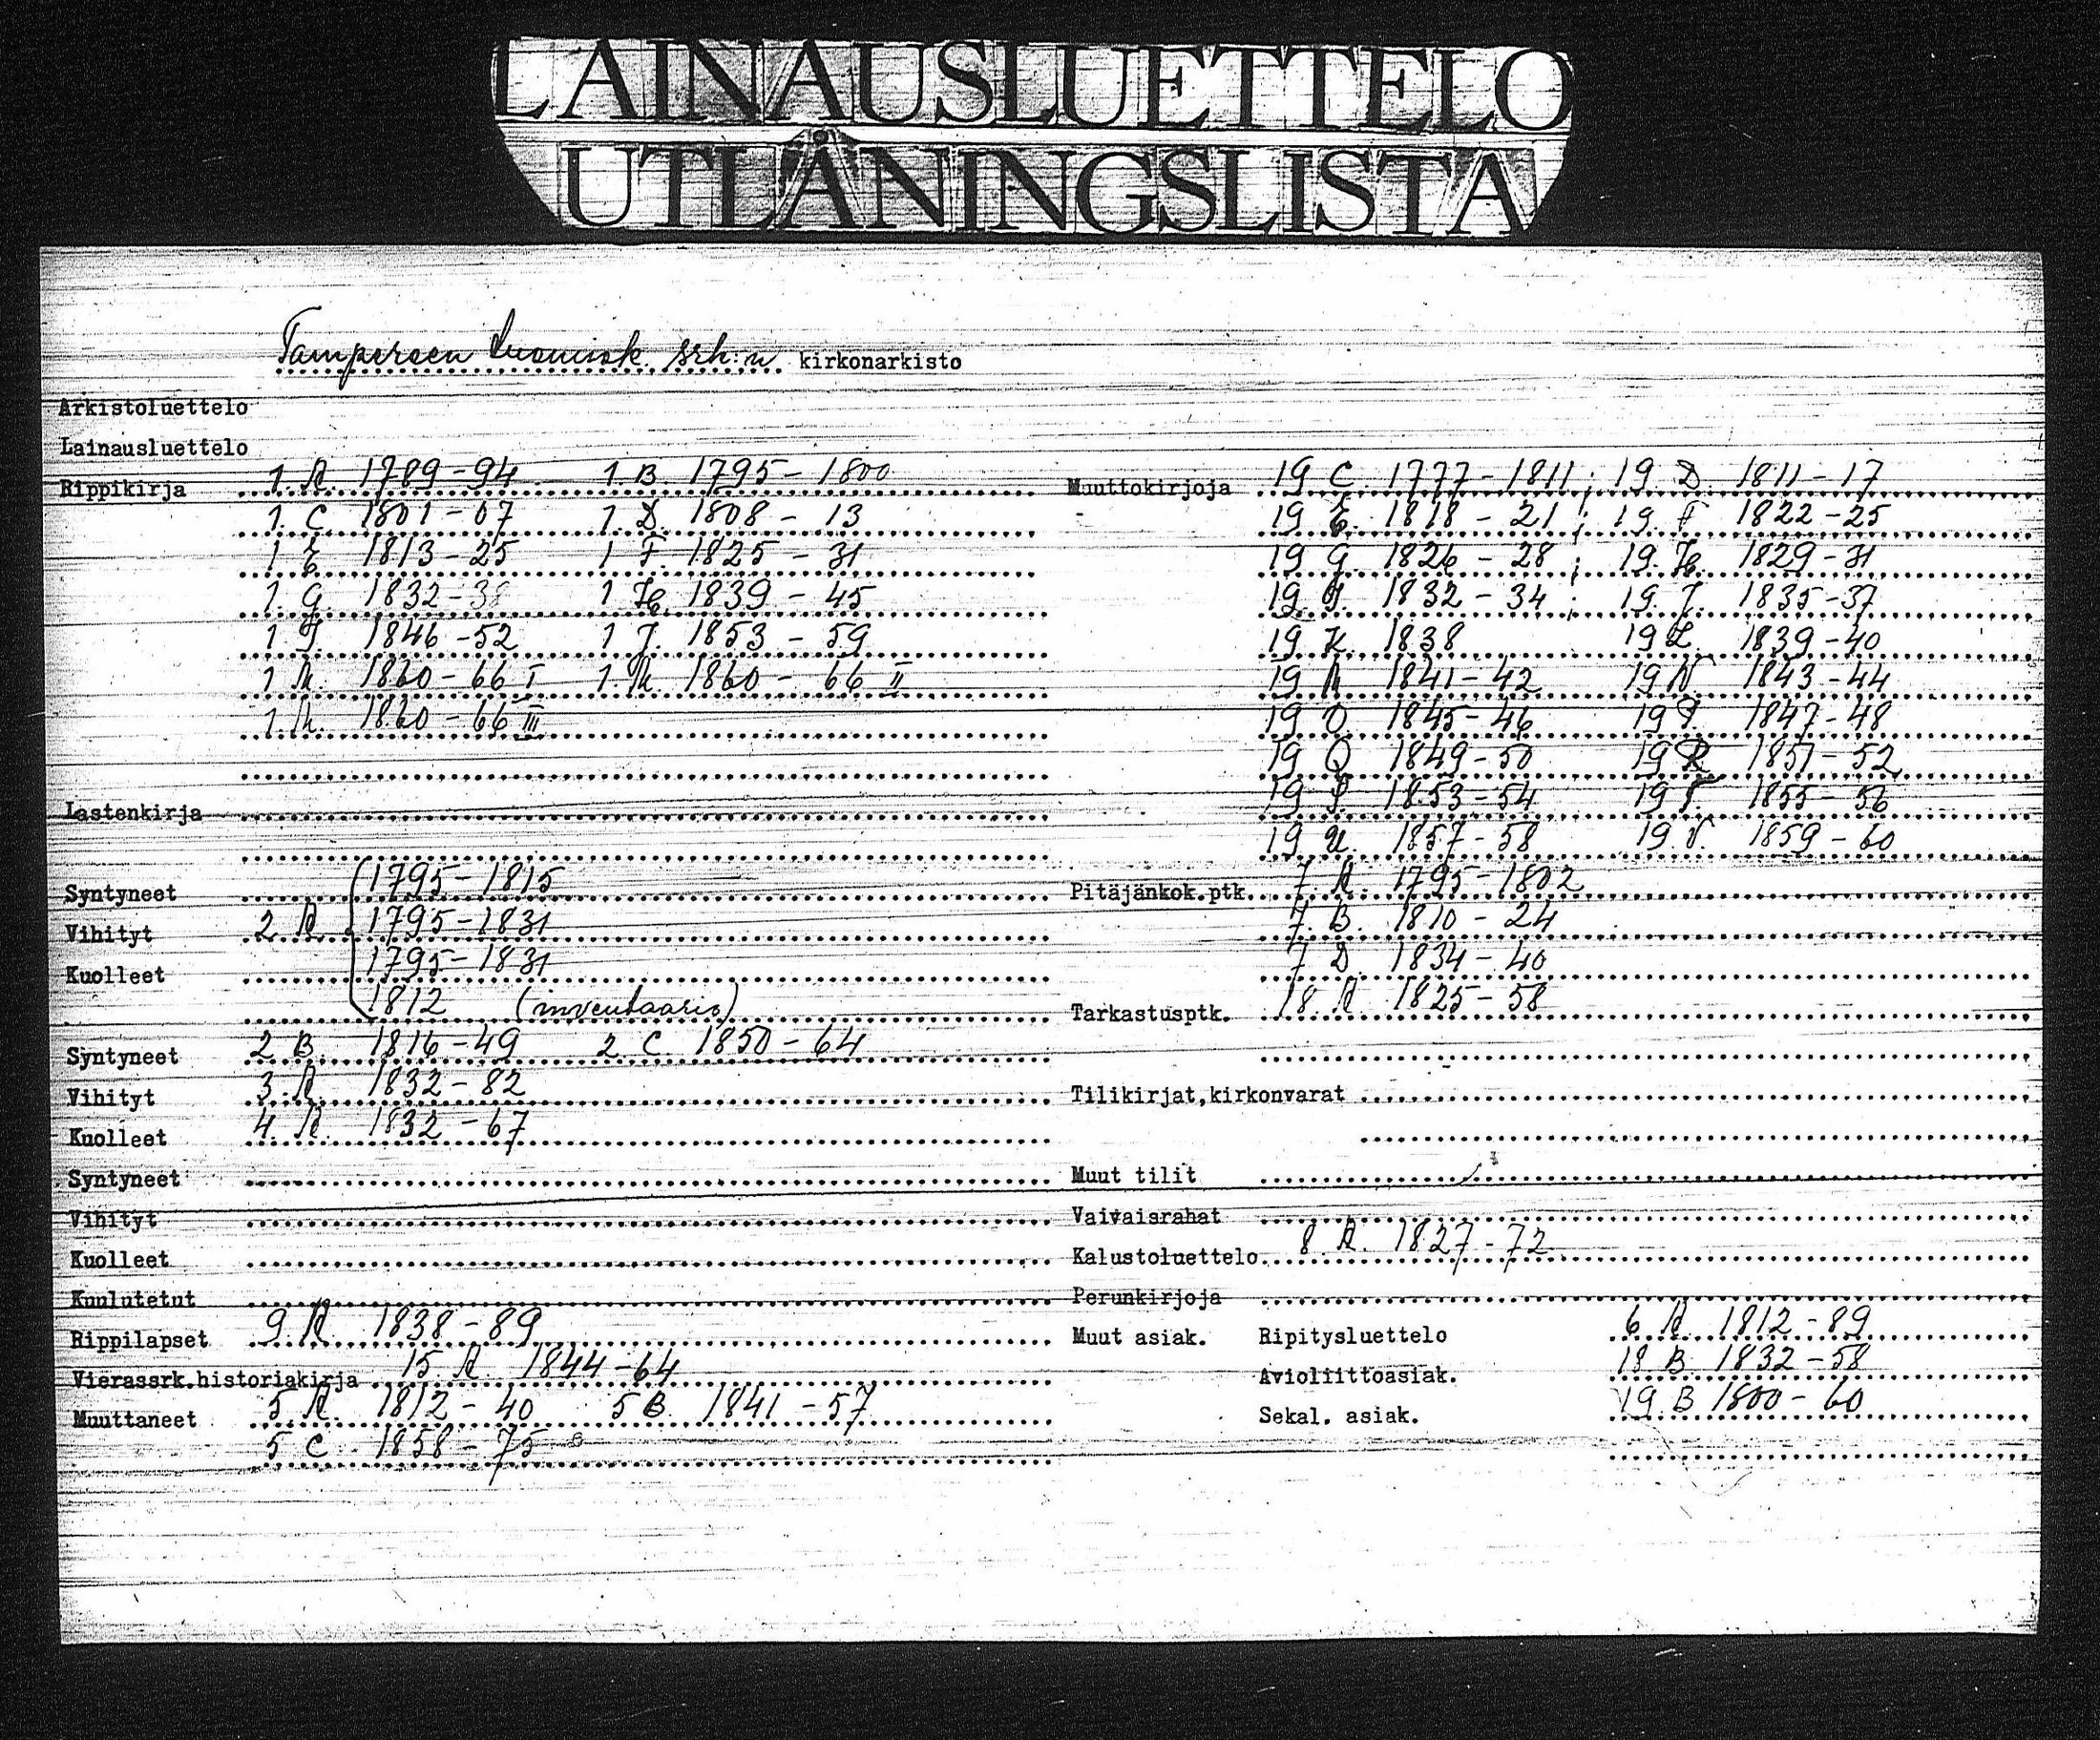 LAINAUSLUETTELO
UTLÅNINGSLISTA
Tampereen tuomiok srh:n kirkonarkisto
Arkistoluettelo
Lainausluettelo
Rippikirja 1 A 1789-94 1 B 1795-1800
1 C 1801-07 1 D 1808-13
1 E 1813-25 1 F 1825-31
1 G 1832-38 1 H 1839-45
1 I 1846-52 1 J 1853-59
1 K 1860-66 I 1 K 1860-66 II
1 K 1860-66 III
Lastenkirja
Syntyneet 1795-1815
Vihityt 2 A 1795-1831
Kuolleet 1795-1831
1812 (inventaario)
Syntyneet 2 B 1816-49 2 C 1850-64
Vihityt 3 A 1832-82
Kuolleet 4 A 1832-67
Syntyneet
Vihityt
Kuolleet
Kuulutetut
Rippilapset 9 A 1838-89
Vierassrk.historiakirja 15 A 1844-64
Muuttaneet 5 A 1812-40 5 B 1841-57
5 C 1858-75
Muuttokirjoja 19 C 1777-1811; 19 D 1811-17
19 E 1818-21; 19 F 1822-25
19 G 1826-28; 19 H 1829-31
19 I 1832-34; 19 J 1835-37
19 K 1838 19 L 1839-40
19 M 1841-42 19 N 1843-44
19 O 1845-46 19 P 1847-48
19 Q 1849-50 19 R 1851-52
19 S 1853-54 19 T 1855-56
19 U 1857-58 19 V 1859-60
Pitäjänkok.ptk. 7 A 1795-1802
7 B 1810-24
7 D 1834-40
Tarkastusptk. 18 A 1825-58
Tilikirjat,kirkonvarat
Muut tilit
Vaivaisrahat
Kalustoluettelo 8 A 1827-72
Perunkirjoja
Muut asiak. Ripitysluettelo 6 A 1812-89
Avioliittoasiak. 18 B 1832-58
Sekal. asiak. 19 B 1800-60